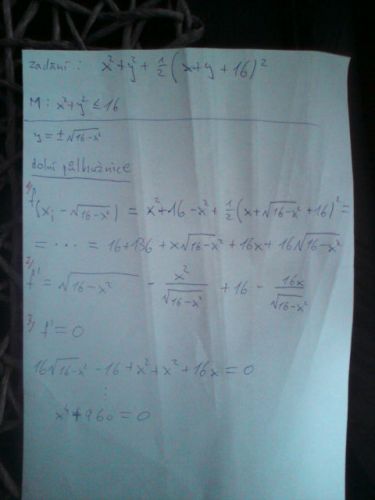 zadání: x² + y² + 1/2 (x + y + 16)²
M: x² + y² ≤ 16
y = ± √16-x²
dolní půlkružnice
1) f(x; -√16-x²) = x² + 16 - x² + 1/2 (x + √16-x² + 16)² =
= ... = 16 + 136 + x√16-x² + 16x + 16√16-x²
2) f' = √16-x² - x²/√16-x² + 16 - 16x/√16-x²
3) f' = 0
16√16-x² - 16 + x² + x² + 16x = 0
⋮
= 0